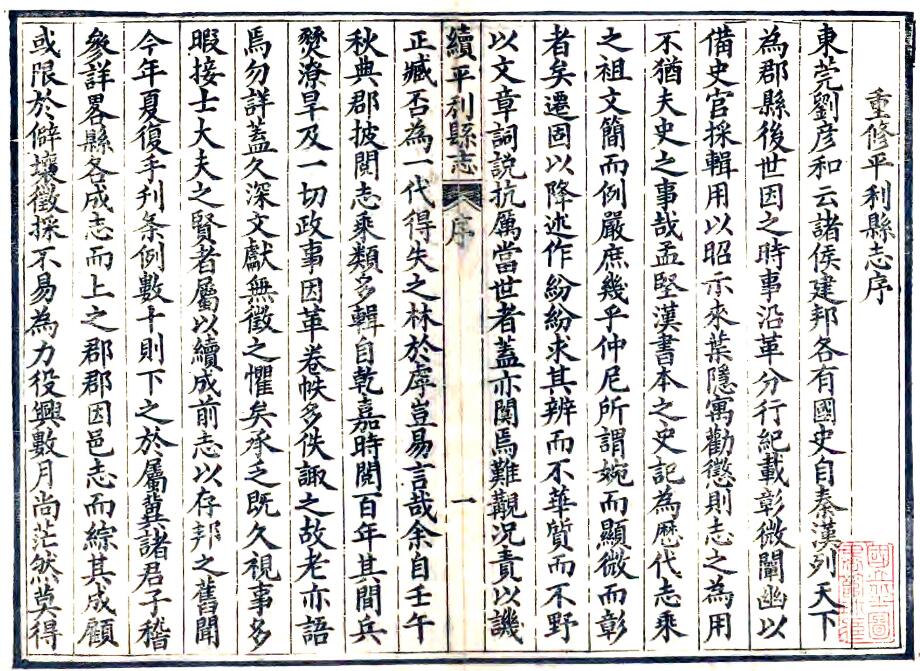 重修平利縣志序
東莞劉彥和云諸侯建邦各有國史自秦漢列天下
為郡縣後世因之時事沿革分行紀載彰微闡幽以
備史官採輯用以昭示來葉隱寓勸懲則志之為用
不猶夫史之事哉孟堅漢書本之史記為歷代志乘
之祖文簡而例嚴庶幾乎仲尼所謂婉而顯微而彰
者矣遷固以降述作紛紛求其辨而不華質而不野
以文章詞說抗厲當世者蓋亦闃焉難覯況責以譏
續平利縣志 序 一
正臧否為一代得失之林於虖豈易言哉余自壬午
秋典郡披閱志乘類多輯自乾嘉時閱百年其間兵
燹潦旱及一切政事因革卷帙多佚諏之故老亦語
焉勿詳蓋久深文獻無徵之懼矣承乏既久視事多
暇接士大夫之賢者屬以續成前志以存邦之舊聞
今年夏復手刋条例數十則下之於屬冀諸君子稽
叅詳畧縣各成志而上之郡郡因邑志而綜其成顧
或限於僻壤徵採不易為力役興數月尚茫然莫得